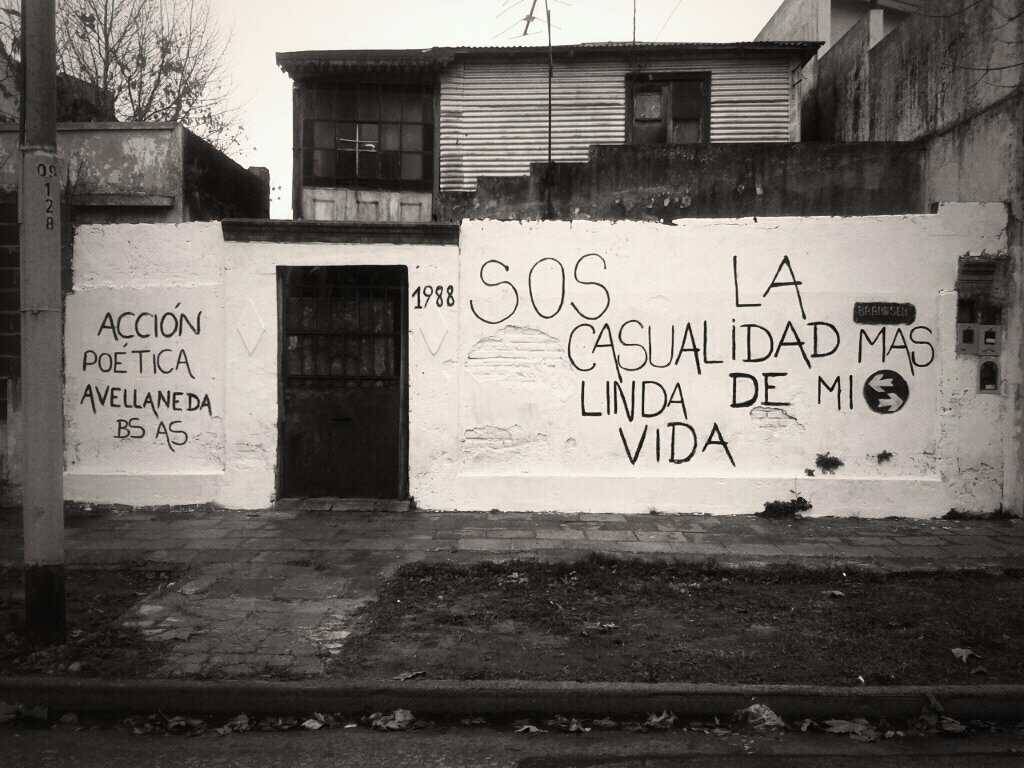 09
128
ACCIÓN
POETICA
AVELLANEDA
BS AS
1988
SOS LA
CASUALIDAD MAS
LINDA DE MI
VIDA
BRANDSEN